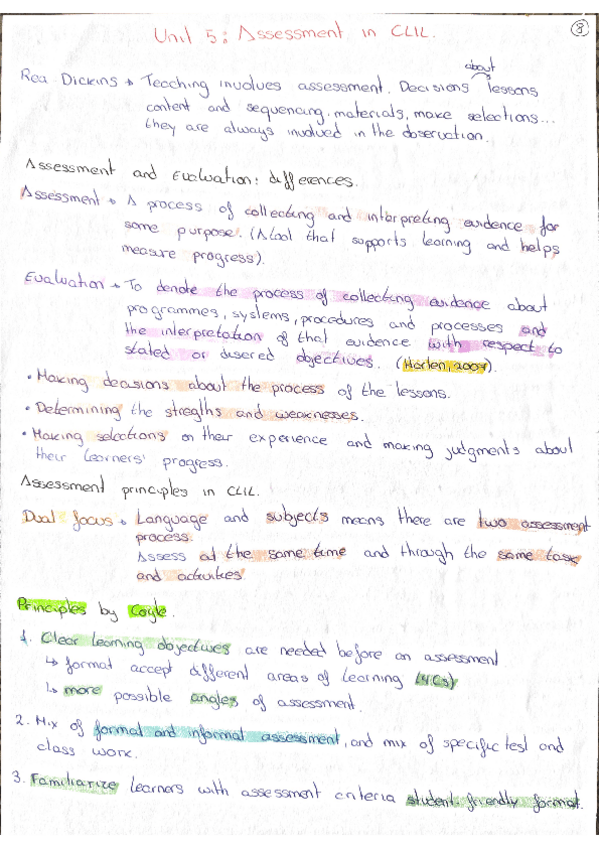 Unit 5: Assessment in CLIL.
8
Rea-Dickins → Teaching involves assessment. Decisions about lessons
content and sequencing, materials, make selections...
they are always involved in the observation.
Assessment and Evaluation: differences.
Assessment → A process of collecting and interpreting evidence for
some purpose. (A tool that supports learning and helps
measure progress).
Evaluation → To denote the process of collecting evidence about
programmes, systems, procedures and processes and
the interpretation of that evidence with respect to
stated or desered objectives. (Harlen 2007).
• Making decisions about the process of the lessons.
• Determining the stregths and weaknesses.
• Making selections on their experience and making judgments about
their learners' progress.
Assessment principles in CLIL.
Dual focus → Language and subjects means there are two assessment
process.
Assess at the same time and through the same task
and activities.
Principles by Coyle.
1. Clear learning objectives are needed before an assessment.
↳ format accept different areas of learning (4Cs)
↳ more possible angles of assessment.
2. Mix of formal and informal assessment, and mix of specific test and
class work.
3. Familiarize learners with assessment criteria student-friendly format.